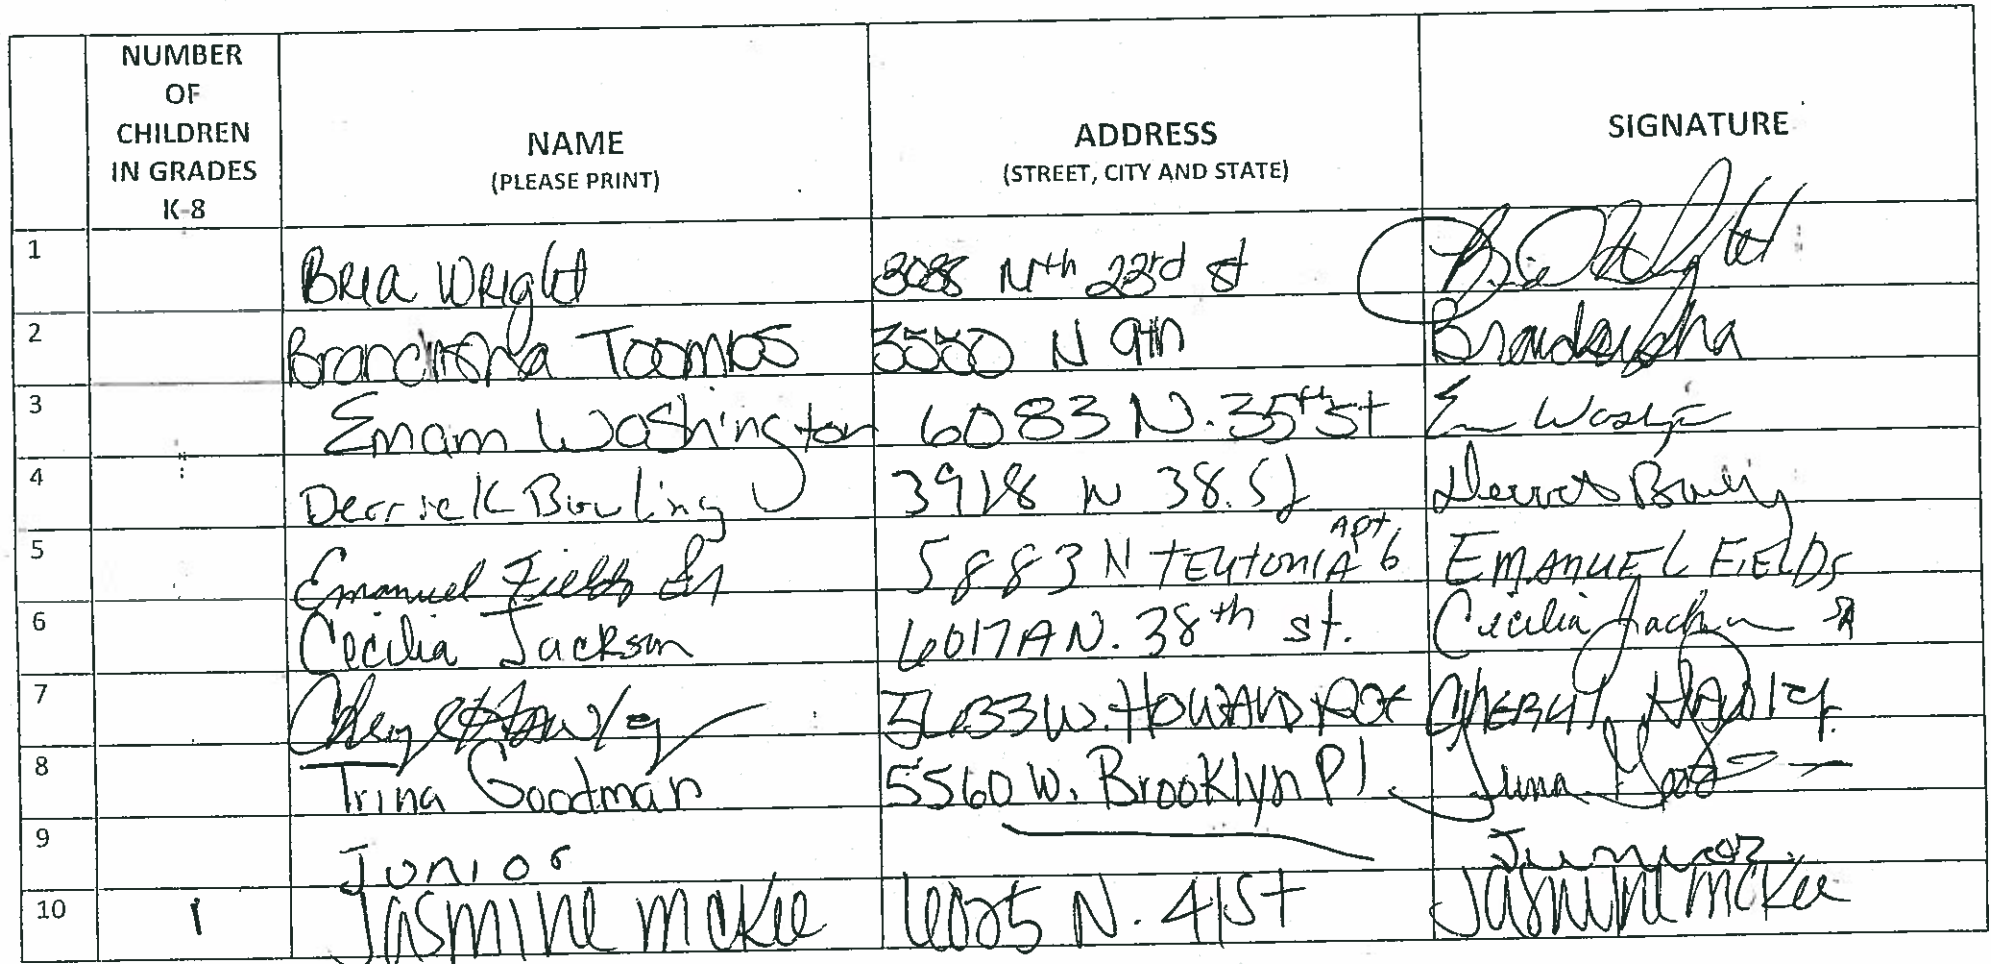 NUMBER OF CHILDREN IN GRADES K-8 NAME (PLEASE PRINT) ADDRESS (STREET, CITY AND STATE) SIGNATURE
1 Bria Wright Nth 23rd st Bria Wright
2 Toombs 3550 N 9th
3 Emam Washington 6083 N. 35th St
4 Derrick Bowling 3918 N 38. St
5 Emanuel Fields Sr 5883 N TEUTONIA Apt 6 EMANUEL FIELDS
6 Cecilia Jackson 6017A N. 38th st. Cecilia Jackson
7 W. HOWARD CHERYL HAWLEY
8 Trina Goodman 5560 W. Brooklyn Pl Trina
9 Junior Junior
10 1 JASMINE MCKEE 6025 N. 41St JASMINE MCKee